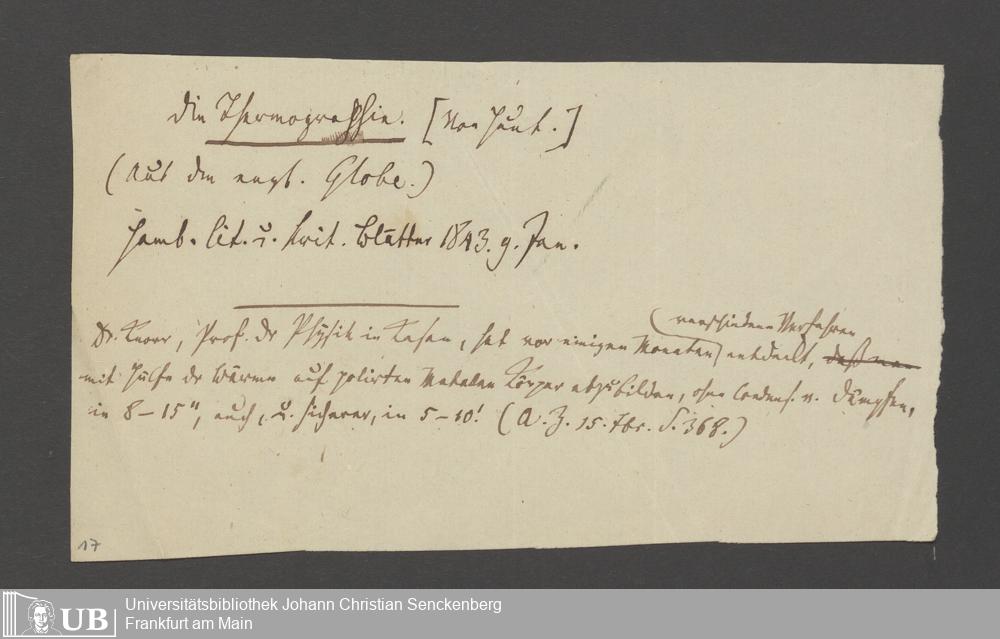 Die Thermographie. [Von Hunt.]
(Aus dem engl. Globe.)
Hamb. lit. u. krit. Blätter 1843. 9. Jan.
verschiedene Verfahren
Dr. Knorr, Prof. der Physik in Kasan, hat vor einigen Monaten entdeckt, daß man
mit Hülfe der Wärme auf polirten Metallen Körper abzubilden, ohne Condens. v. Dämpfen,
in 8–15", auch, u. sicherer, in 5–10' (A. Z. 15. Fbr. S. 368.)
17
UB
Universitätsbibliothek Johann Christian Senckenberg
Frankfurt am Main